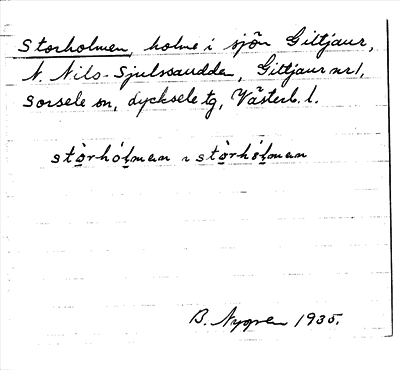 Storholmen, holme i sjön Gittjaur,
N. Nils-Sjulssaudden, Gittjaur nr 1,
Sorsele sn, Lycksele tg, Västerb. l.
stòrhól̥men ~ stòrhól̥men
B. Nygren 1935.